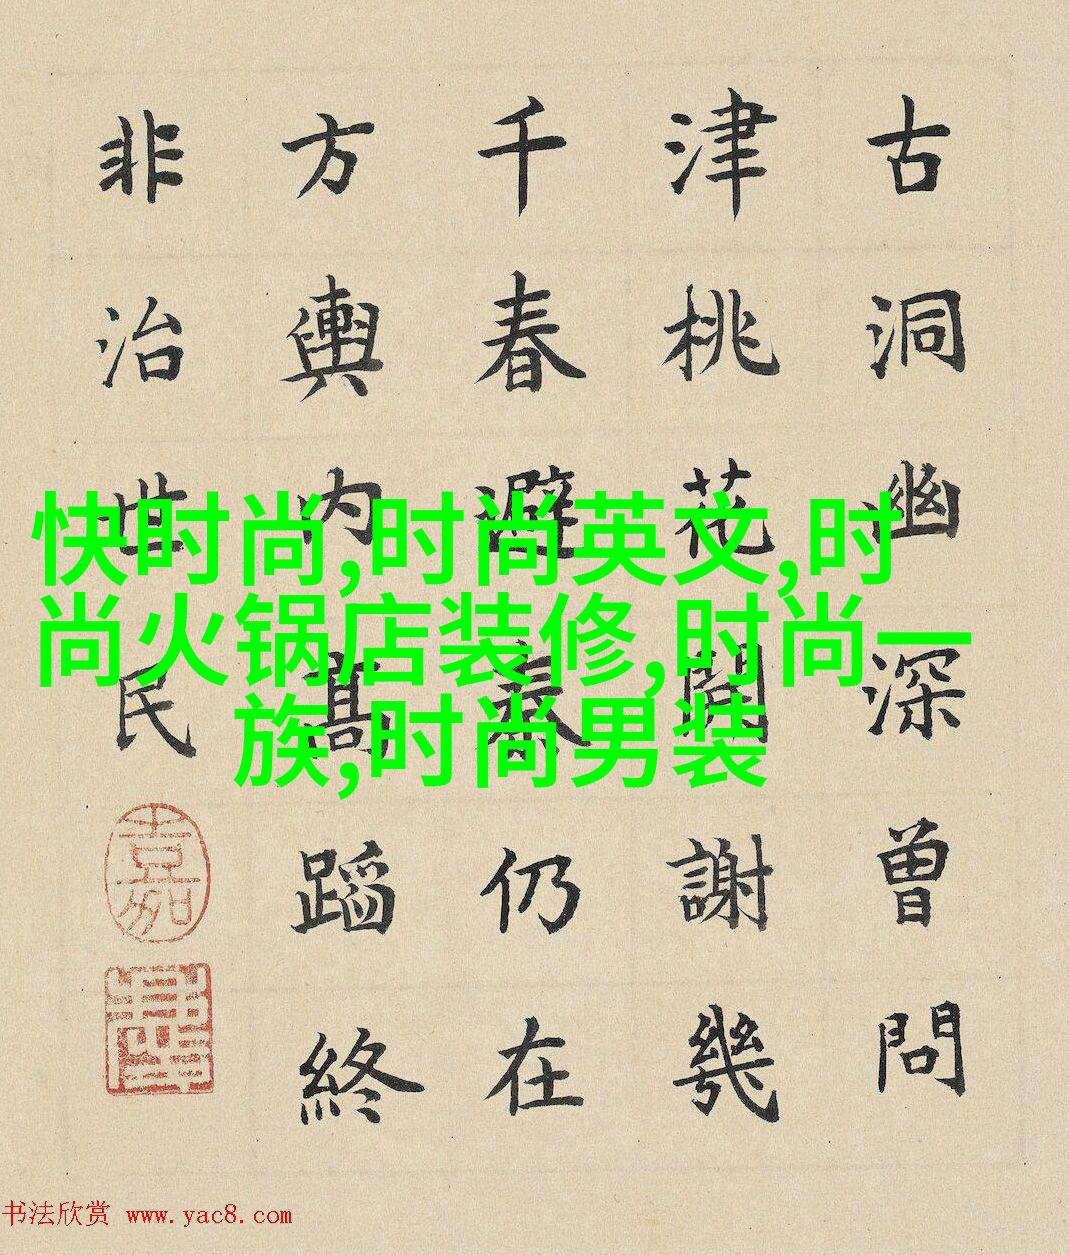 古洞幽深曾問
津桃花開謝幾
千春避秦仍在
方輿內髙蹈終
非治世民
快时尚,时尚英文,时
尚火锅店装修,时尚一
族,时尚男装
书法欣赏 www.yac8.com